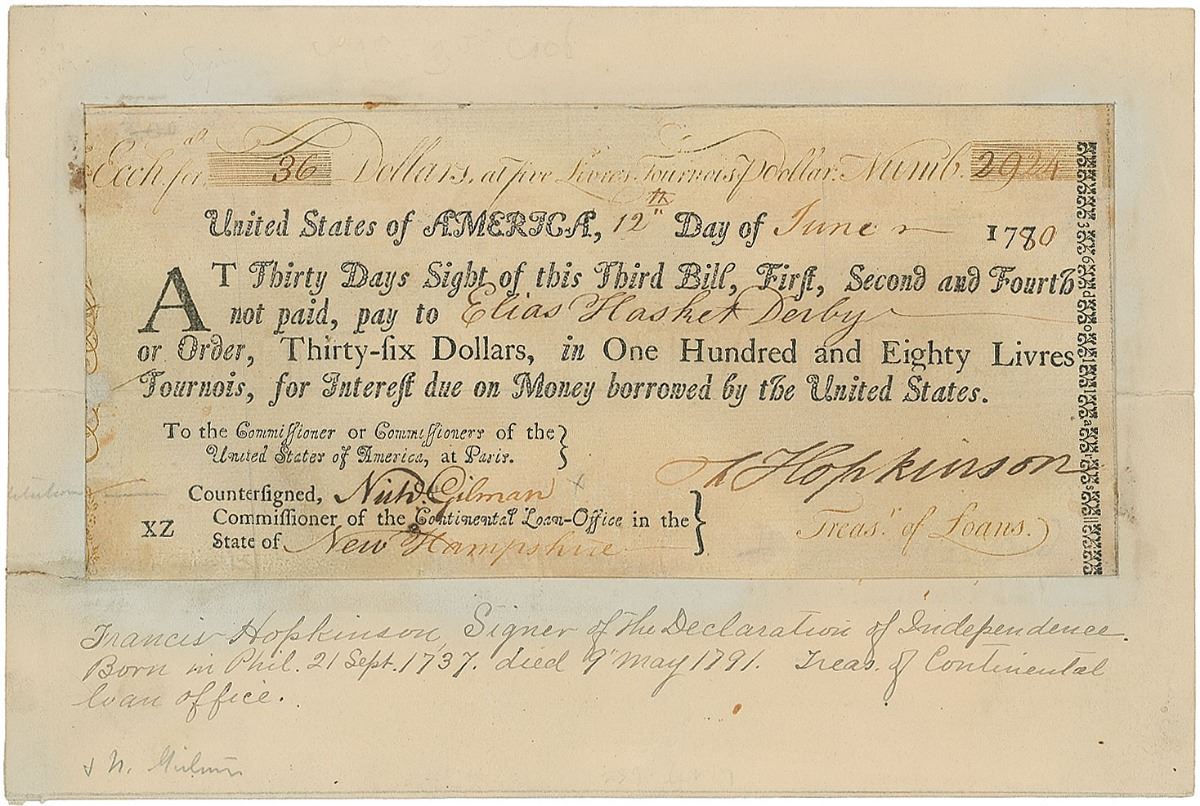 Exch. for 36 Dollars, at five Livres Tournois ⅌ Dollar. Numb. 2924
United States of AMERICA, 12th Day of June 1780
AT Thirty Days Sight of this Third Bill, Firſt, Second and Fourth
not paid, pay to Elias Hasket Derby
or Order, Thirty-ſix Dollars, in One Hundred and Eighty Livres
Tournois, for Intereſt due on Money borrowed by the United States.
To the Commiſſioner or Commiſſioners of the
United States of America, at Paris.
F Hopkinson
Treasr of Loans.
Countersigned, Nichs Gilman
Commiſſioner of the Continental Loan-Office in the
State of New Hampshire
XZ
36 dollars
Francis Hopkinson, Signer of the Declaration of Independence.
Born in Phil. 21 Sept. 1737. died 9 May 1791. Treas. of Continental
loan office.
& N. Gilman